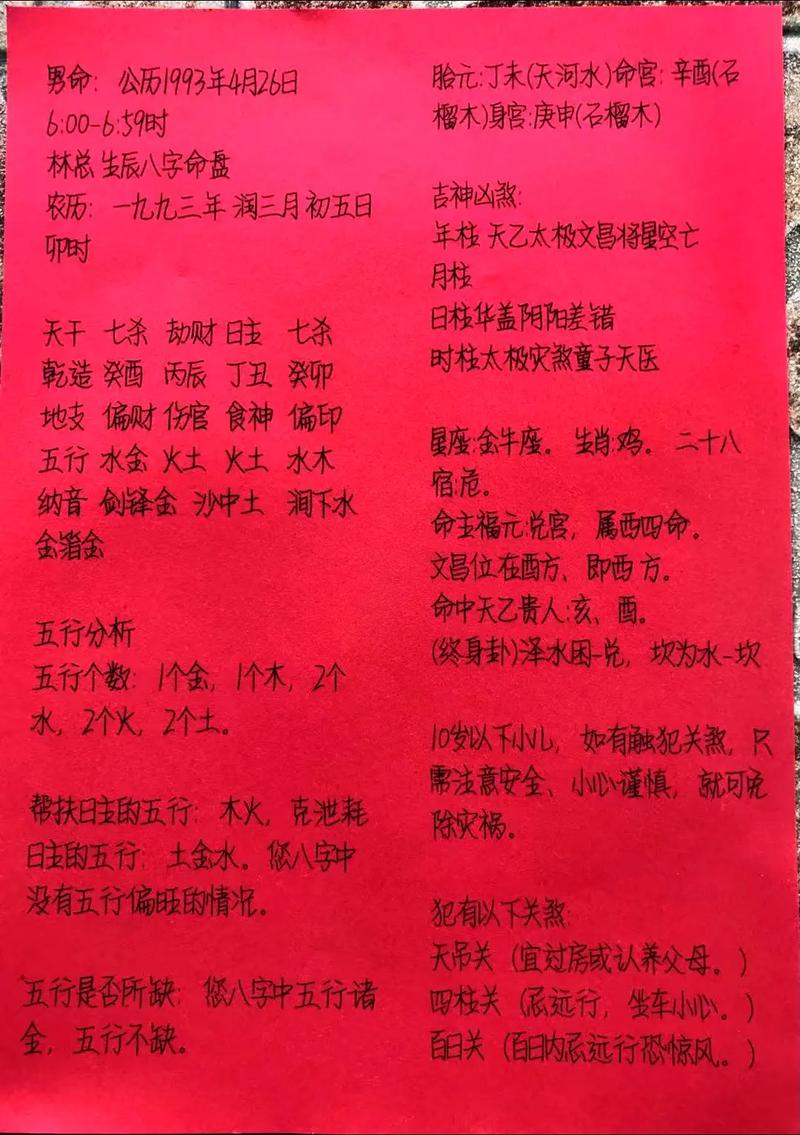 男命： 公历1993年4月26日
6:00-6:59时
林总 生辰八字命盘
农历： 一九九三年 润三月 初五日
卯时
天干 七杀 劫财 日主 七杀
乾造 癸酉 丙辰 丁丑 癸卯
地支 偏财 伤官 食神 偏印
五行 水金 火土 火土 水木
纳音 剑锋金 沙中土 涧下水
金箔金
五行分析
五行个数： 1个金，1个木，2个
水，2个火，2个土。
帮扶日主的五行：木火，克泄耗
日主的五行：土金水。您八字中
没有五行偏旺的情况。
五行是否所缺：您八字中五行诸
全，五行不缺。
胎元:丁未(天河水)命宫：辛酉(石
榴木)身宫:庚申(石榴木)
吉神凶煞:
年柱 天乙太极文昌将星空亡
月柱
日柱华盖阴阳差错
时柱太极灾煞童子天医
星座:金牛座。 生肖:鸡。 二十八
宿:危。
命主福元:兑宫，属西四命。
文昌位在酉方、即西方。
命中天乙贵人:亥、酉。
(终身卦)泽水困-兑，坎为水-坎
10岁以下小儿，如有触犯关煞，只
需注意安全、小心谨慎，就可免
除灾祸。
犯有以下关煞:
天吊关（宜过房或认养父母。）
四柱关（忌远行，坐车小心。）
百日关（百日内忌远行恐惊风。）